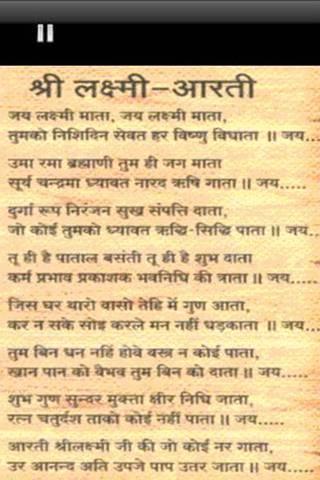 श्री लक्ष्मी-आरती
जय लक्ष्मी माता, जय लक्ष्मी माता,
तुमको निशिदिन सेवत हर विष्णु विघाता ॥ जय...
उमा रमा ब्रह्माणी तुम ही जग माता
सूर्य चन्द्रमा ध्यावत नारद ऋषि गाता ॥ जय.....
दुर्गा रूप निरंजन सुख संपत्ति दाता,
जो कोई तुमको ध्यावत ऋद्धि-सिद्धि पाता ॥ जय...
तू ही है पाताल बसंती तू ही है शुभ दाता
कर्म प्रभाव प्रकाशक भवनिधि की त्राता ॥ जय.....
जिस घर थारो वासो तेहि में गुण आता,
कर न सके सोइ करले मन नहीं धड़काता ॥ जय...
तुम बिन धन नहिं होवे वस्त्र न कोई पाता,
खान पान को वैभव तुम बिन को दाता ॥ जय.....
शुभ गुण सुन्दर मुक्ता क्षीर निधि जाता,
रत्न चतुर्दश ताको कोई नहीं पाता ॥ जय.....
आरती श्रीलक्ष्मी जी की जो कोई नर गाता,
उर आनन्द अति उपजे पाप उतर जाता ॥ जय.....